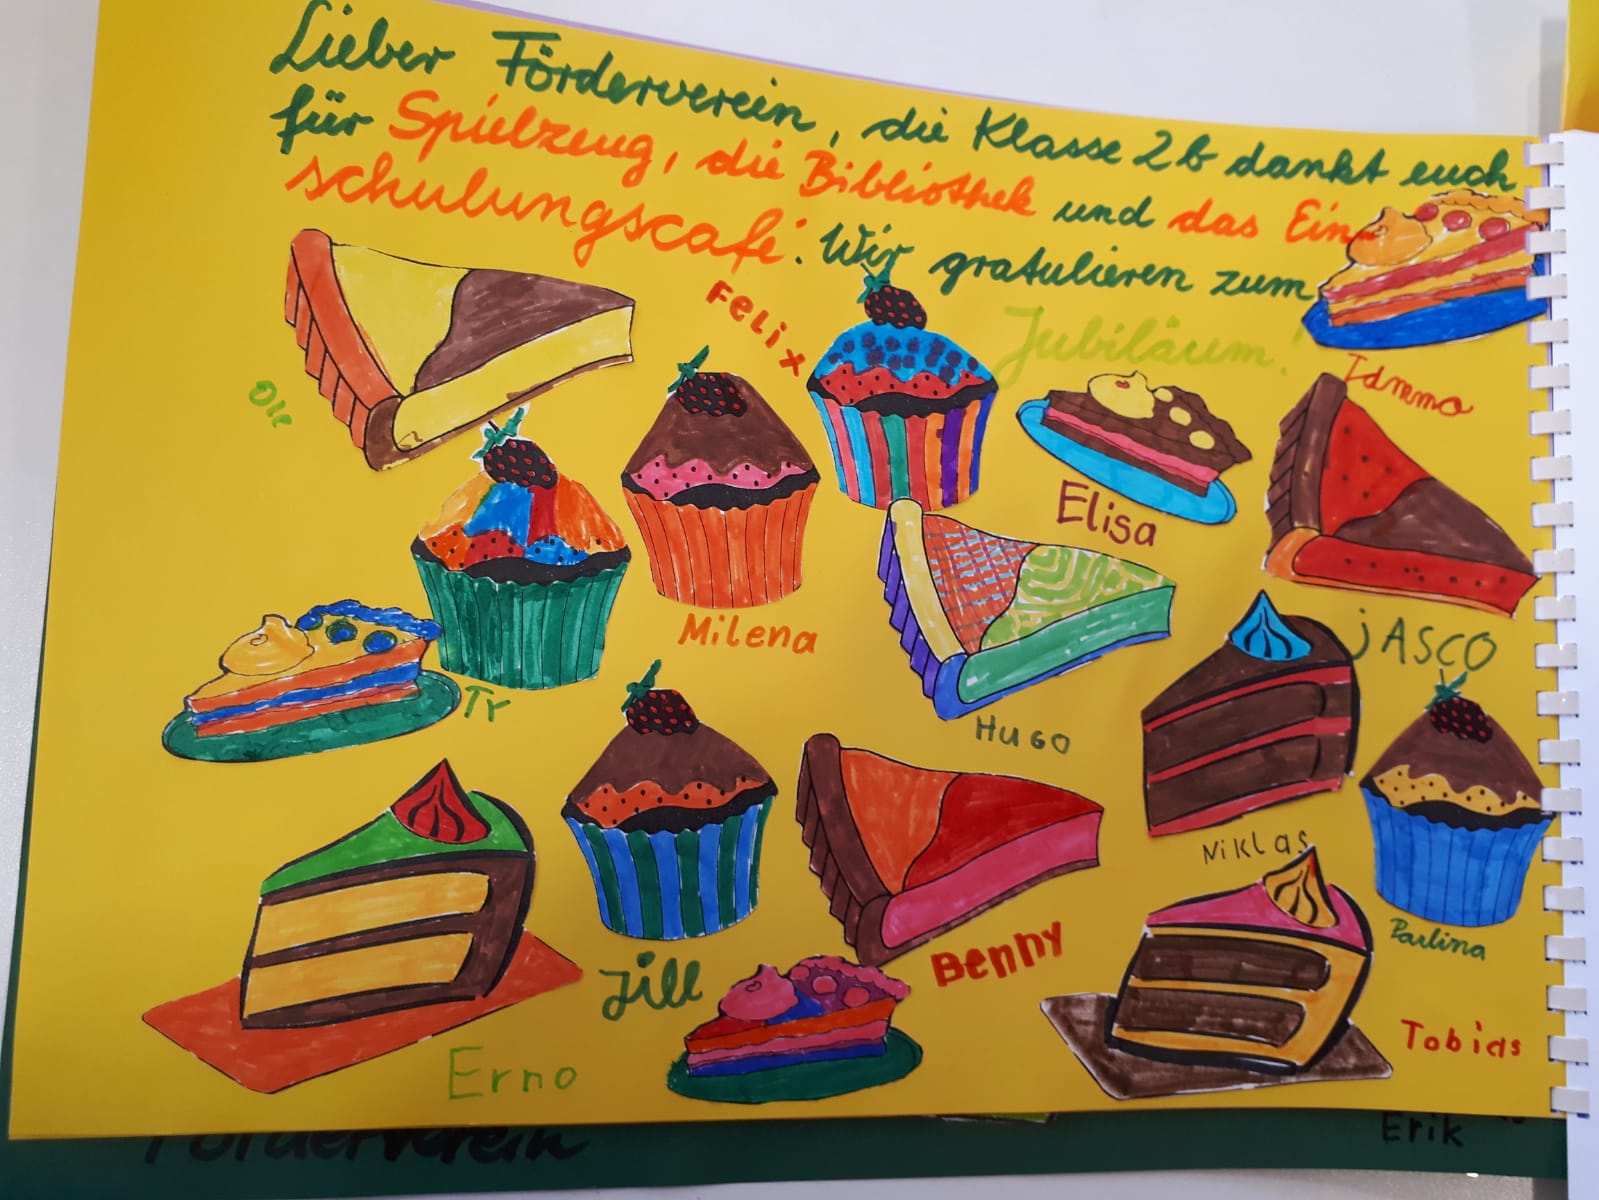 Lieber Förderverein, die Klasse 2b dankt euch
für Spielzeug, die Bibliothek und das Ein-
schulungscafé. Wir gratulieren zum
Jubiläum!
Felix
Ole
Elisa
Milena
jASCO
Ty
HUGO
Niklas
Paulina
Benny
Jill
Tobias
Erno
Förderverein
Erik